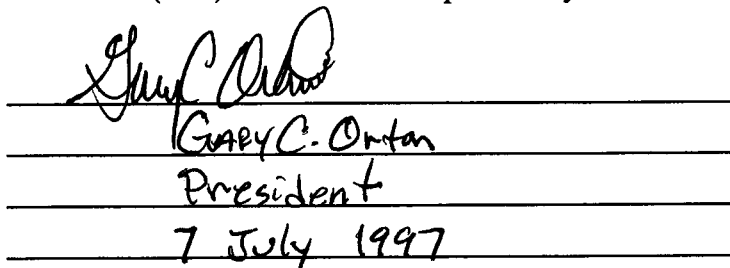 Gary C. Orton
GARY C. Orton
President
7 July 1997